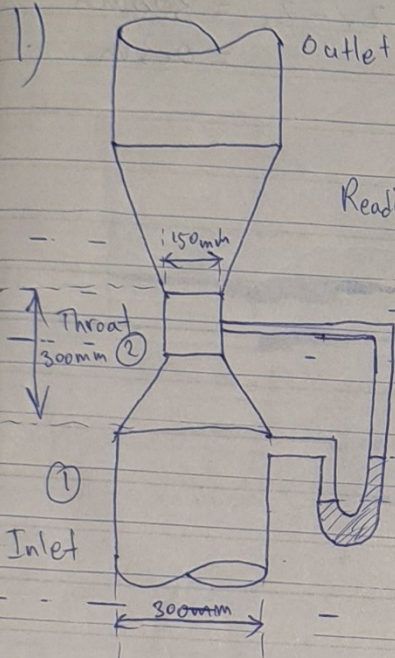 1.)
Outlet
Read
150mm
Throat
300mm ②
①
Inlet
300mm